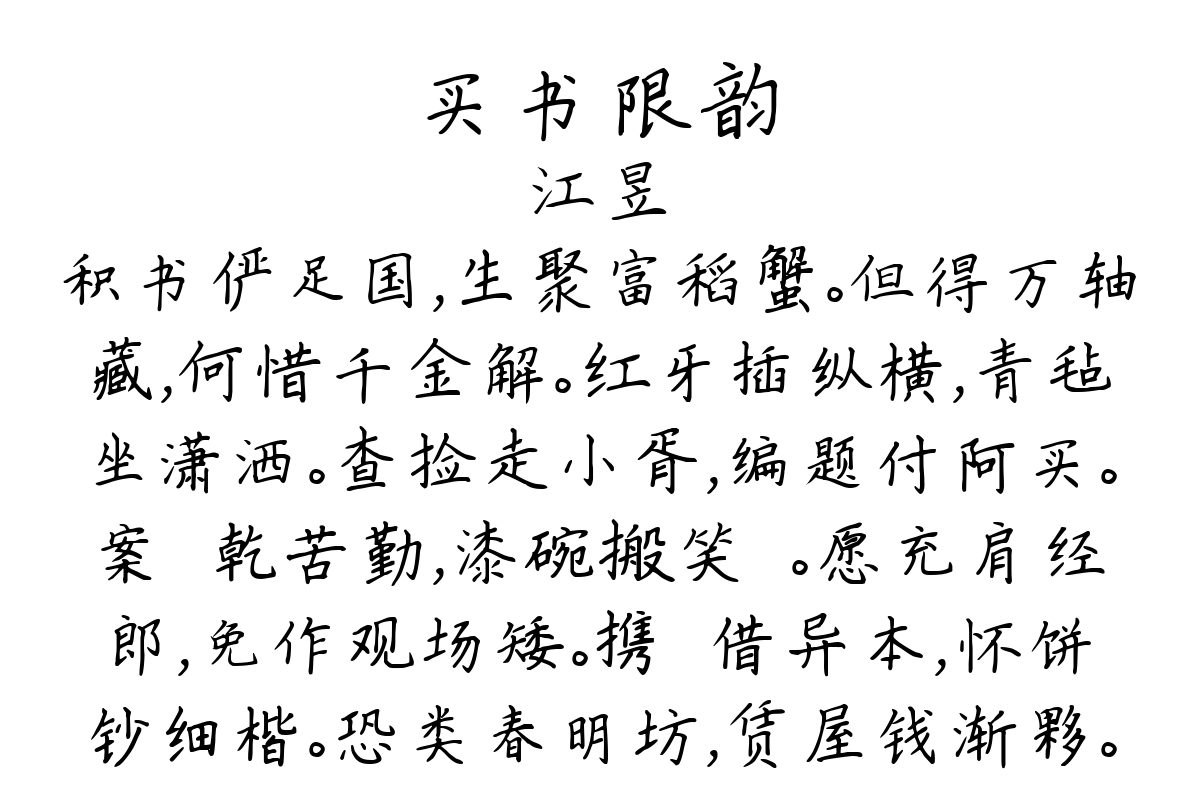 买书限韵
江昱
积书俨足国,生聚富稻蟹。但得万轴
藏,何惜千金解。红牙插纵横,青毡
坐潇洒。查捡走小胥,编题付阿买。
案 乾苦勤,漆碗搬笑 。愿充肩经
郎,免作观场矮。携 借异本,怀饼
钞细楷。恐类春明坊,赁屋钱渐夥。